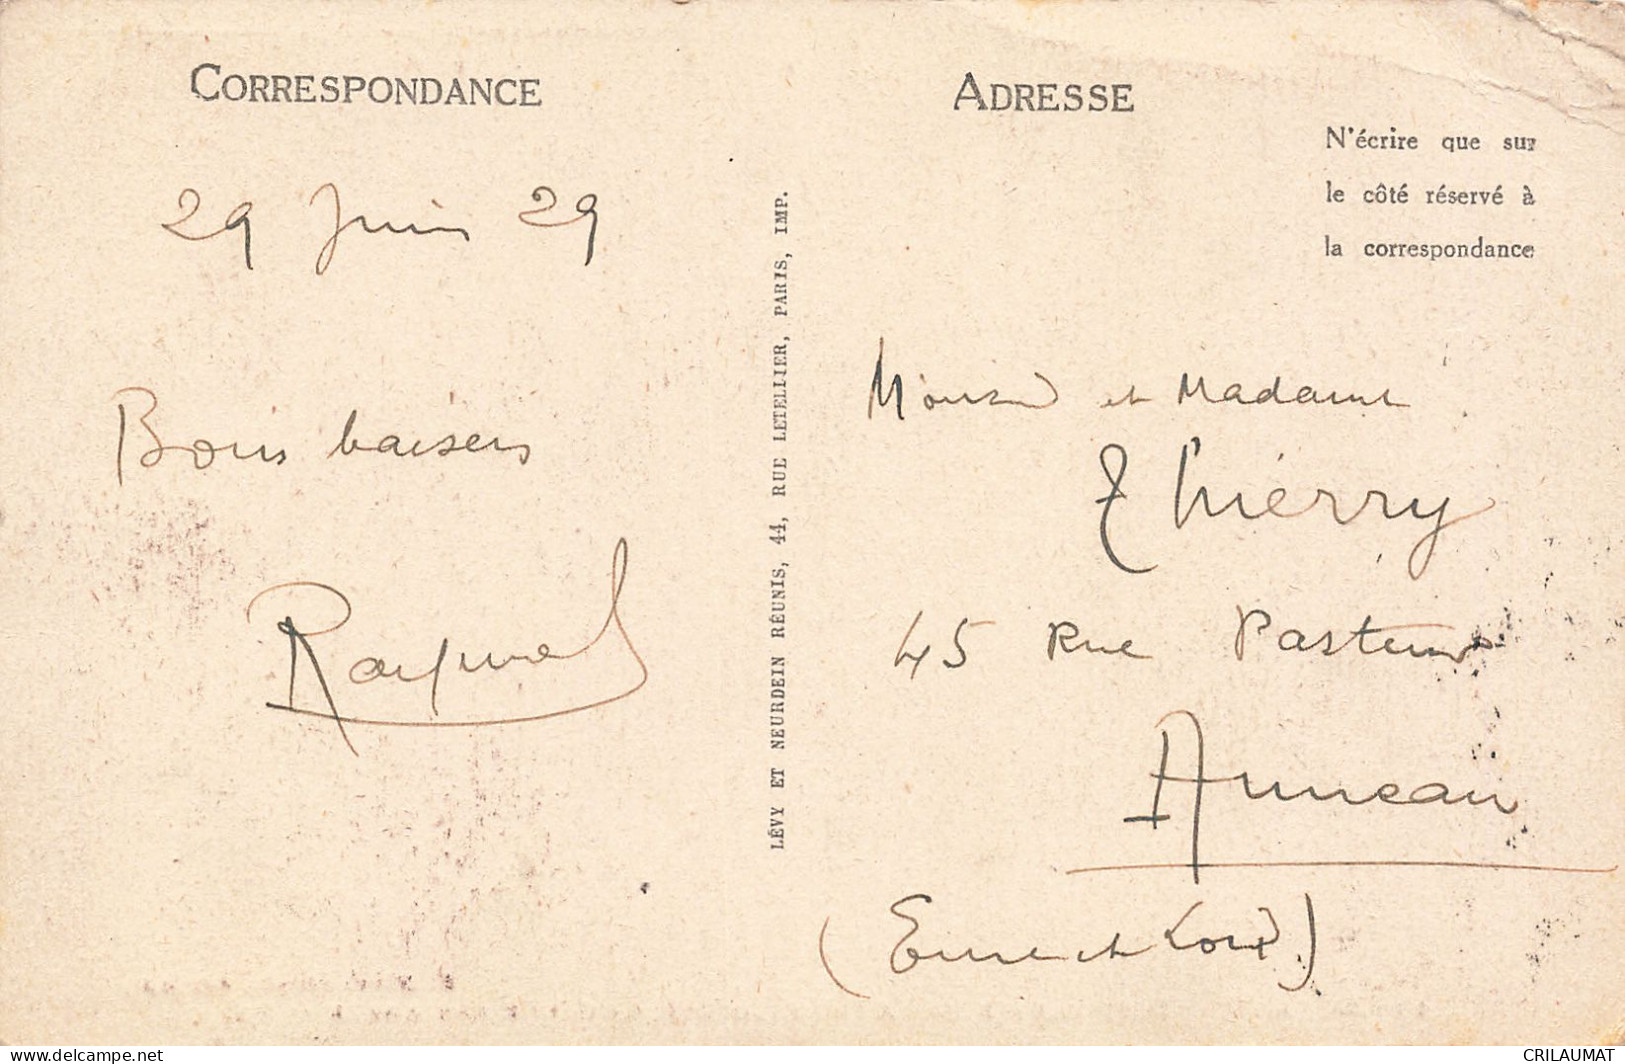 CORRESPONDANCE
29 Juin 29
Bons baisers
LÉVY ET NEURDEIN RÉUNIS, 44, RUE LETELLIER, PARIS, IMP.
ADRESSE
N'écrire que sur
le côté réservé à
la correspondance
Monsieur et Madame
Thierry
45 Rue Pasteur
Auneau
(Eure et Loir)
www.delcampe.net
CRILAUMAT